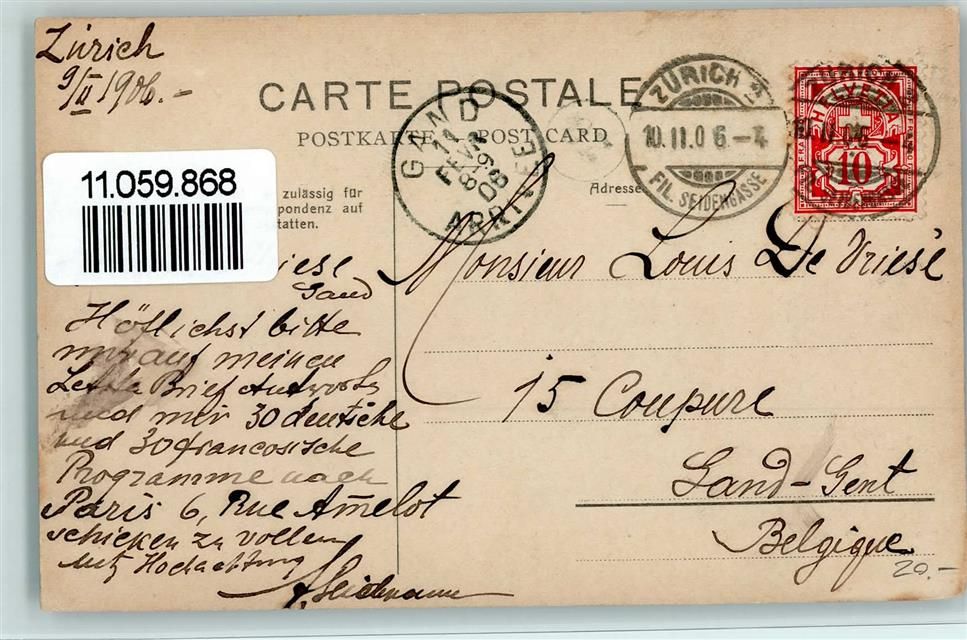 Zürich
9/II 1906.-
CARTE POSTALE
POSTKARTE - POST CARD
11.059.868
zulässig für
pondenz auf
tatten.
Adresse
GAND
11
FEVR
8-9
06
ARRIVEE
ZÜRICH 1
10.II.06-4
FIL. SEIDENGASSE
HELVETIA
FRANCO
10
Monsieur Louis De Vriesé
15 Coupure
Gand-Gent
Belgique
20.-
iese
Gand
Höflichst bitte
mir auf meinen
Letzte Brief Antworte
und mir 30 deutsche
und 30 francosische
Programme nach
Paris 6, Rue Amelot
schicken zu vollen
mitz Hochachtung